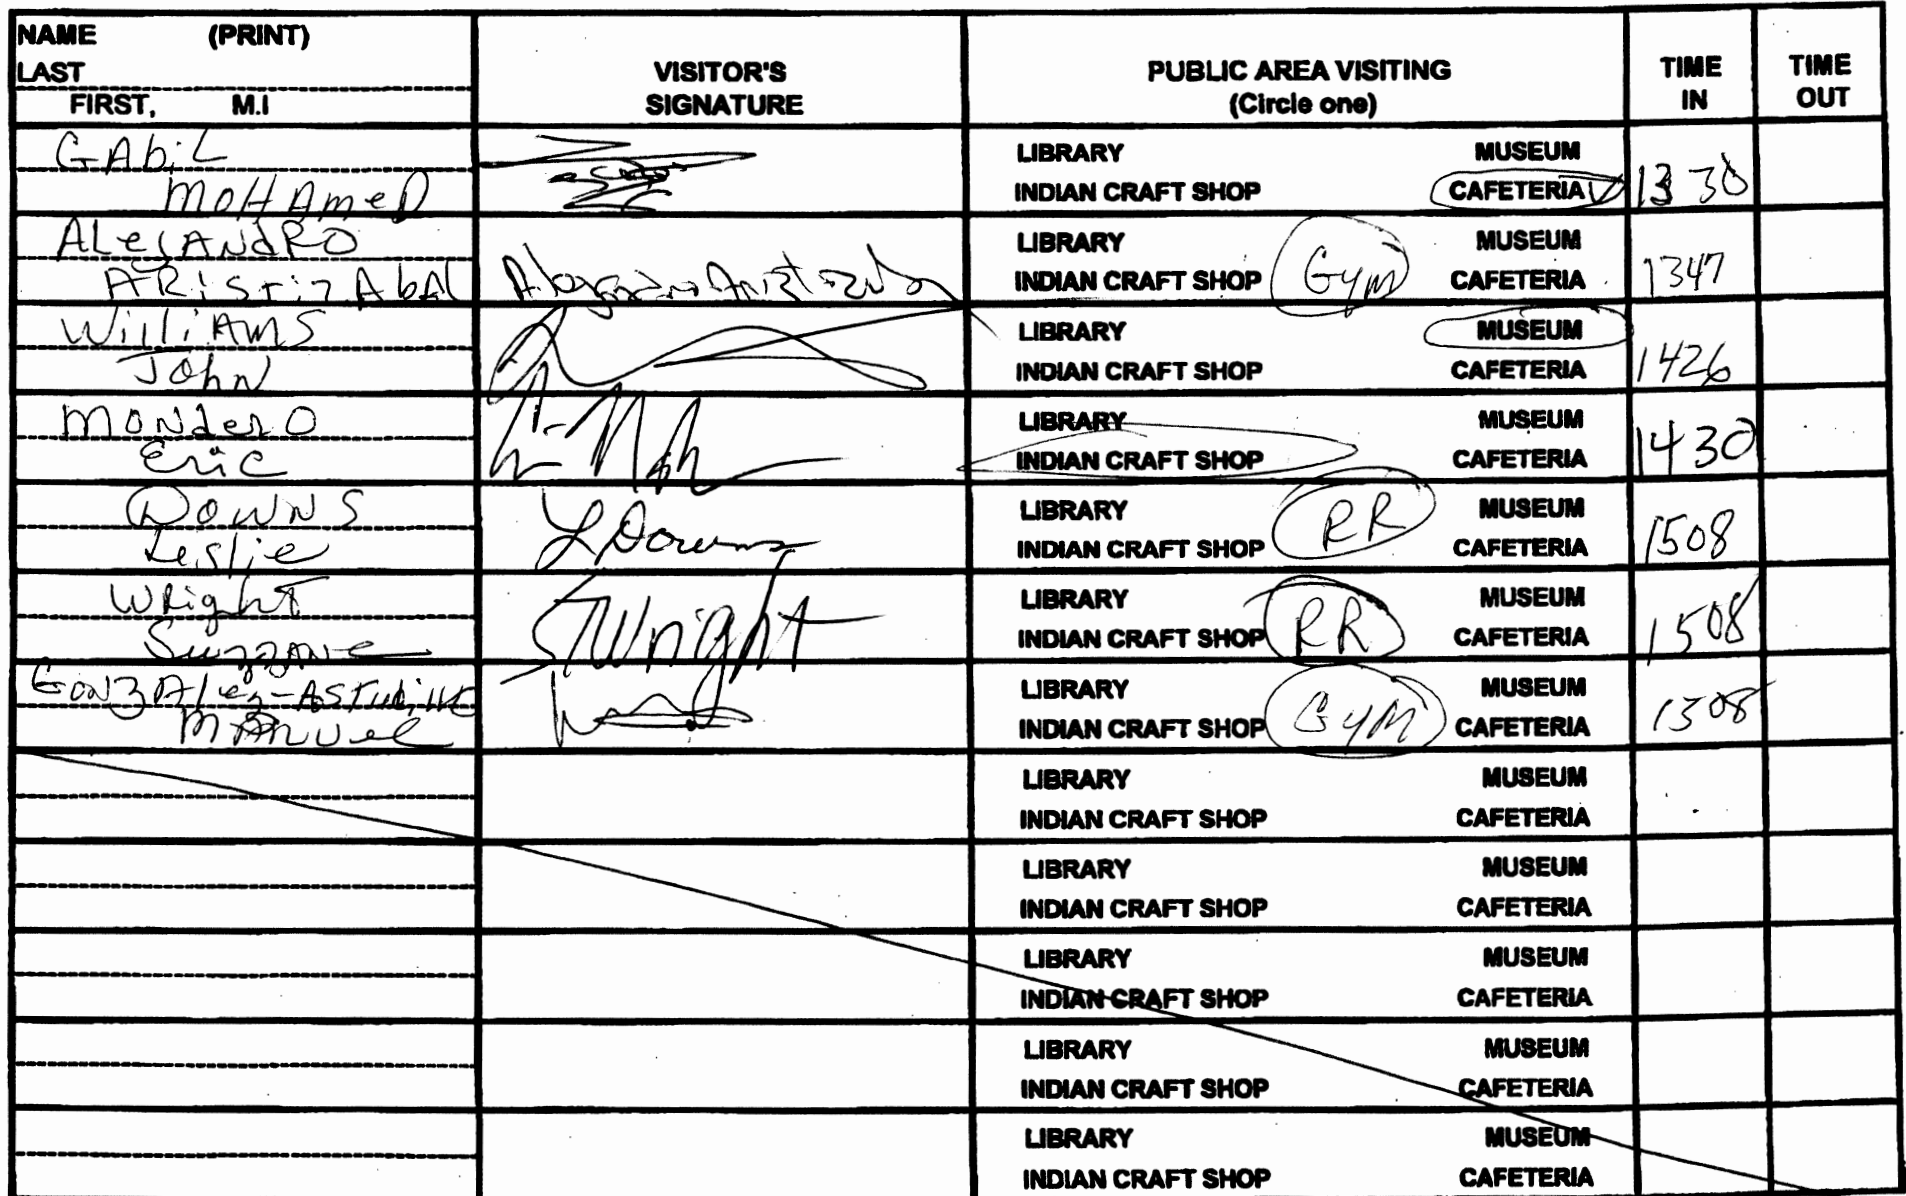 NAME (PRINT)
LAST
FIRST, M.I
VISITOR'S
SIGNATURE
PUBLIC AREA VISITING
(Circle one)
TIME
IN
TIME
OUT
GAbiL
MOHAmeD
LIBRARY MUSEUM
INDIAN CRAFT SHOP CAFETERIA
1330
ALejANdRO
ARiSTizAbAl
LIBRARY MUSEUM
INDIAN CRAFT SHOP Gym CAFETERIA
1347
WilliAMS
John
LIBRARY MUSEUM
INDIAN CRAFT SHOP CAFETERIA
1426
MONdeRO
Eric
LIBRARY MUSEUM
INDIAN CRAFT SHOP CAFETERIA
1430
DOWNS
Leslie
L Downs
LIBRARY RR MUSEUM
INDIAN CRAFT SHOP CAFETERIA
1508
WRighT
SuzzANe
SWright
LIBRARY MUSEUM
INDIAN CRAFT SHOP RR CAFETERIA
1508
GONzAlez-ASTudillo
MANuel
LIBRARY MUSEUM
INDIAN CRAFT SHOP GYM CAFETERIA
1508
LIBRARY MUSEUM
INDIAN CRAFT SHOP CAFETERIA
LIBRARY MUSEUM
INDIAN CRAFT SHOP CAFETERIA
LIBRARY MUSEUM
INDIAN CRAFT SHOP CAFETERIA
LIBRARY MUSEUM
INDIAN CRAFT SHOP CAFETERIA
LIBRARY MUSEUM
INDIAN CRAFT SHOP CAFETERIA